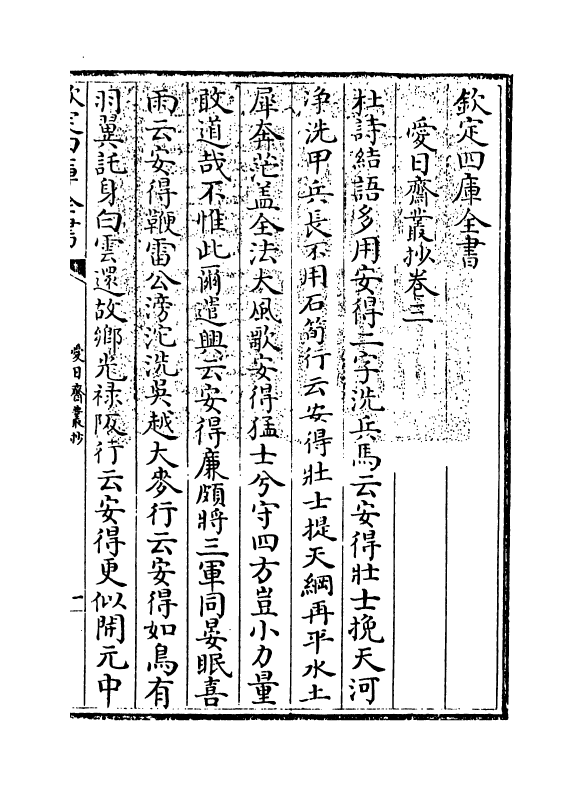 欽定四庫全書
愛日齋叢抄卷三
杜詩結語多用安得二字洗兵馬云安得壯士挽天河
净洗甲兵長不用石筍行云安得壯士提天綱再平水土
犀奔茫盖全法大風歌安得猛士兮守四方豈小力量
敢道哉不惟此爾遣興云安得廉頗將三軍同晏眠喜
雨云安得鞭雷公滂沱洗吳越大麥行云安得如鳥有
羽翼託身白雲還故鄉光禄阪行云安得更似開元中
欽定四庫全書
愛日齋叢抄
一